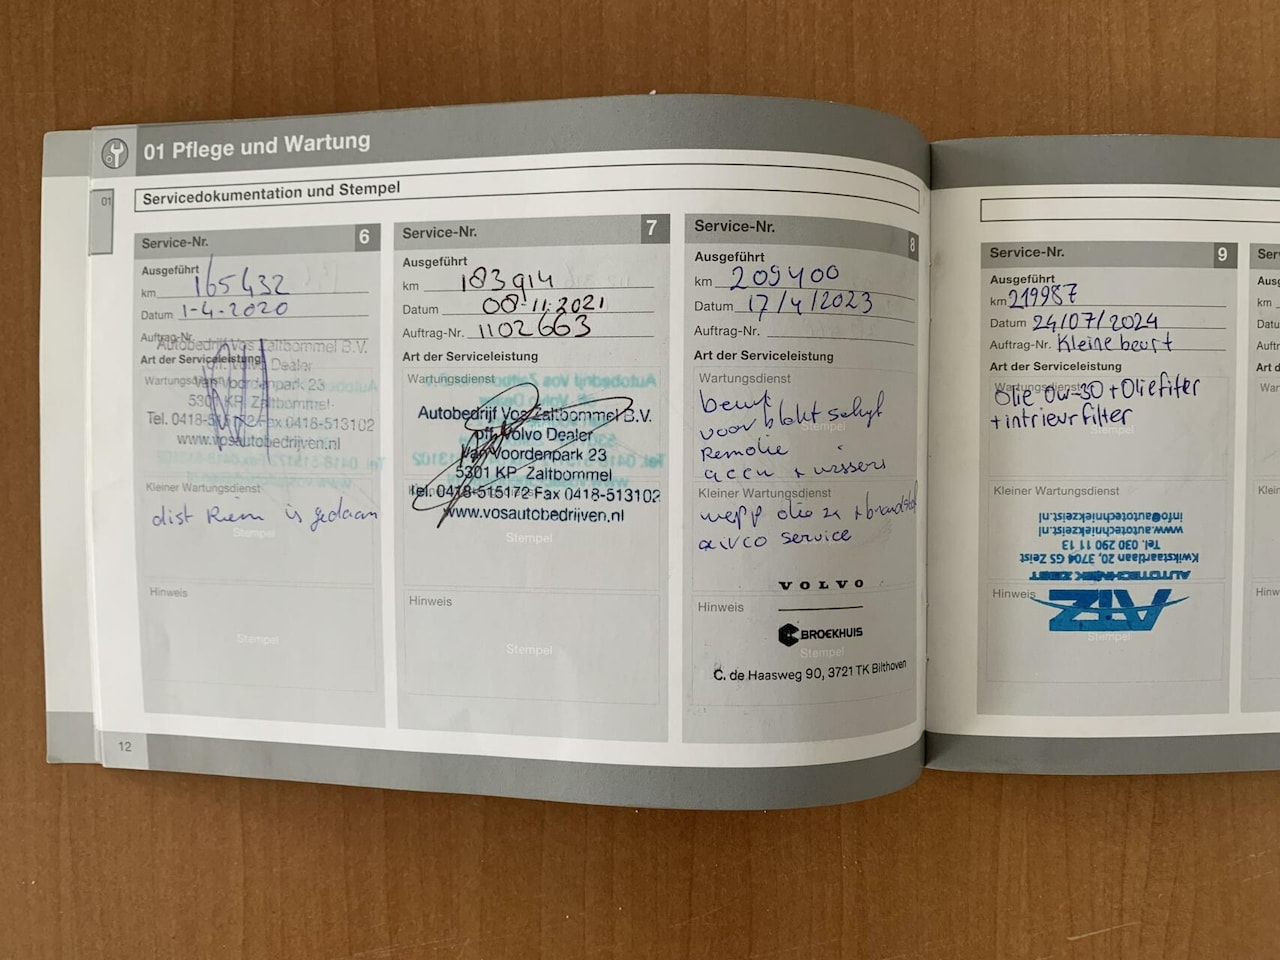 01 Pflege und Wartung
01
Servicedokumentation und Stempel
Service-Nr. 6
Ausgeführt
km 165432
Datum 1-4-2020
Auftrag-Nr.
Autobedrijf Vos Zaltbommel B.V.
Art der Serviceleistung
Dealer
Wartungsdienst
Van Voordenpark 23
5301 KP Zaltbommel
Tel. 0418-515172 Fax 0418-513102
www.vosautobedrijven.nl
Kleiner Wartungsdienst
dist Riem is gedaan
Stempel
Hinweis
Stempel
12
Service-Nr. 7
Ausgeführt
km 183914
Datum 08-11-2021
Auftrag-Nr. 1102663
Art der Serviceleistung
Wartungsdienst
Autobedrijf Vos Zaltbommel B.V.
off. Volvo Dealer
Van Voordenpark 23
5301 KP Zaltbommel
Tel. 0418-515172 Fax 0418-513102
www.vosautobedrijven.nl
Stempel
Hinweis
Stempel
Service-Nr. 8
Ausgeführt
km 209400
Datum 17/4/2023
Auftrag-Nr.
Art der Serviceleistung
Wartungsdienst
beurt
voor
Stempel
Remolie
accu + wissers
Kleiner Wartungsdienst
olie
airco service
VOLVO
Hinweis
BROEKHUIS
Stempel
C. de Haasweg 90, 3721 TK Bilthoven
Service-Nr. 9
Ausgeführt
km 219987
Datum 24/07/2024
Auftrag-Nr. Kleine beurt
Art der Serviceleistung
Wartungsdienst
Olie 0w-30 + Oliefilter
+ intrieurfilter
Stempel
Kleiner Wartungsdienst
info@autotechniekzeist.nl
www.autotechniekzeist.nl
Tel. 030 290 11 13
Kwikstaartlaan 20, 3704 GS Zeist
AUTOTECHNIEK ZEIST
Hinweis
ATZ
Stempel